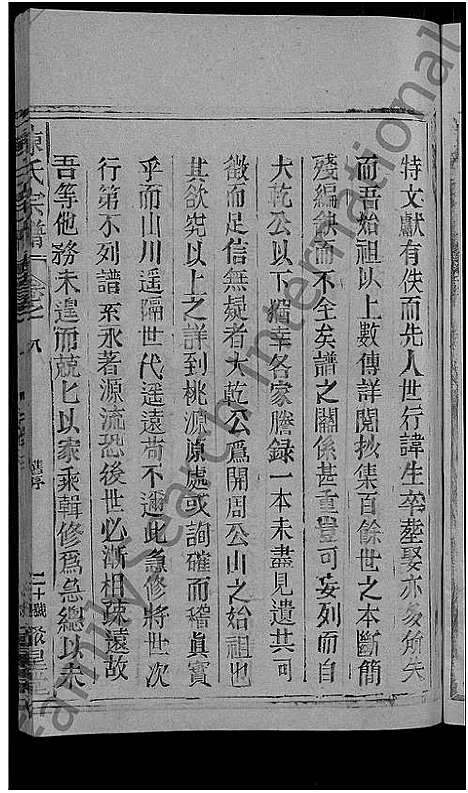 特文獻有佚而先人世行諱生卒塟娶亦多所失
而吾始祖以上數傳詳閱抄集百餘世之本斷簡
殘編缺而不全矣譜之關係甚重豈可妄列而自
大乾公以下獨幸各家謄錄一本未盡見遺其可
徵而足信無疑者大乾公爲開周公山之始祖也
其欲究以上之詳到桃源原處或詢確而稽眞實
乎而山川遥隔世代遥遠苟不邇此急修將世次
行第不列譜系永著源流恐後世必漸相疎遠故
吾等他務未遑而兢匕以家乘輯修爲急總以未
陳氏宗譜
Family Search International